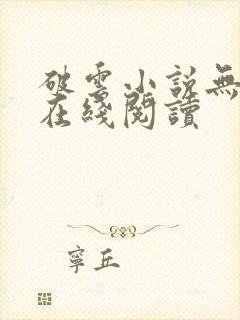 破雲小說無
在綫閱讀
寧丘